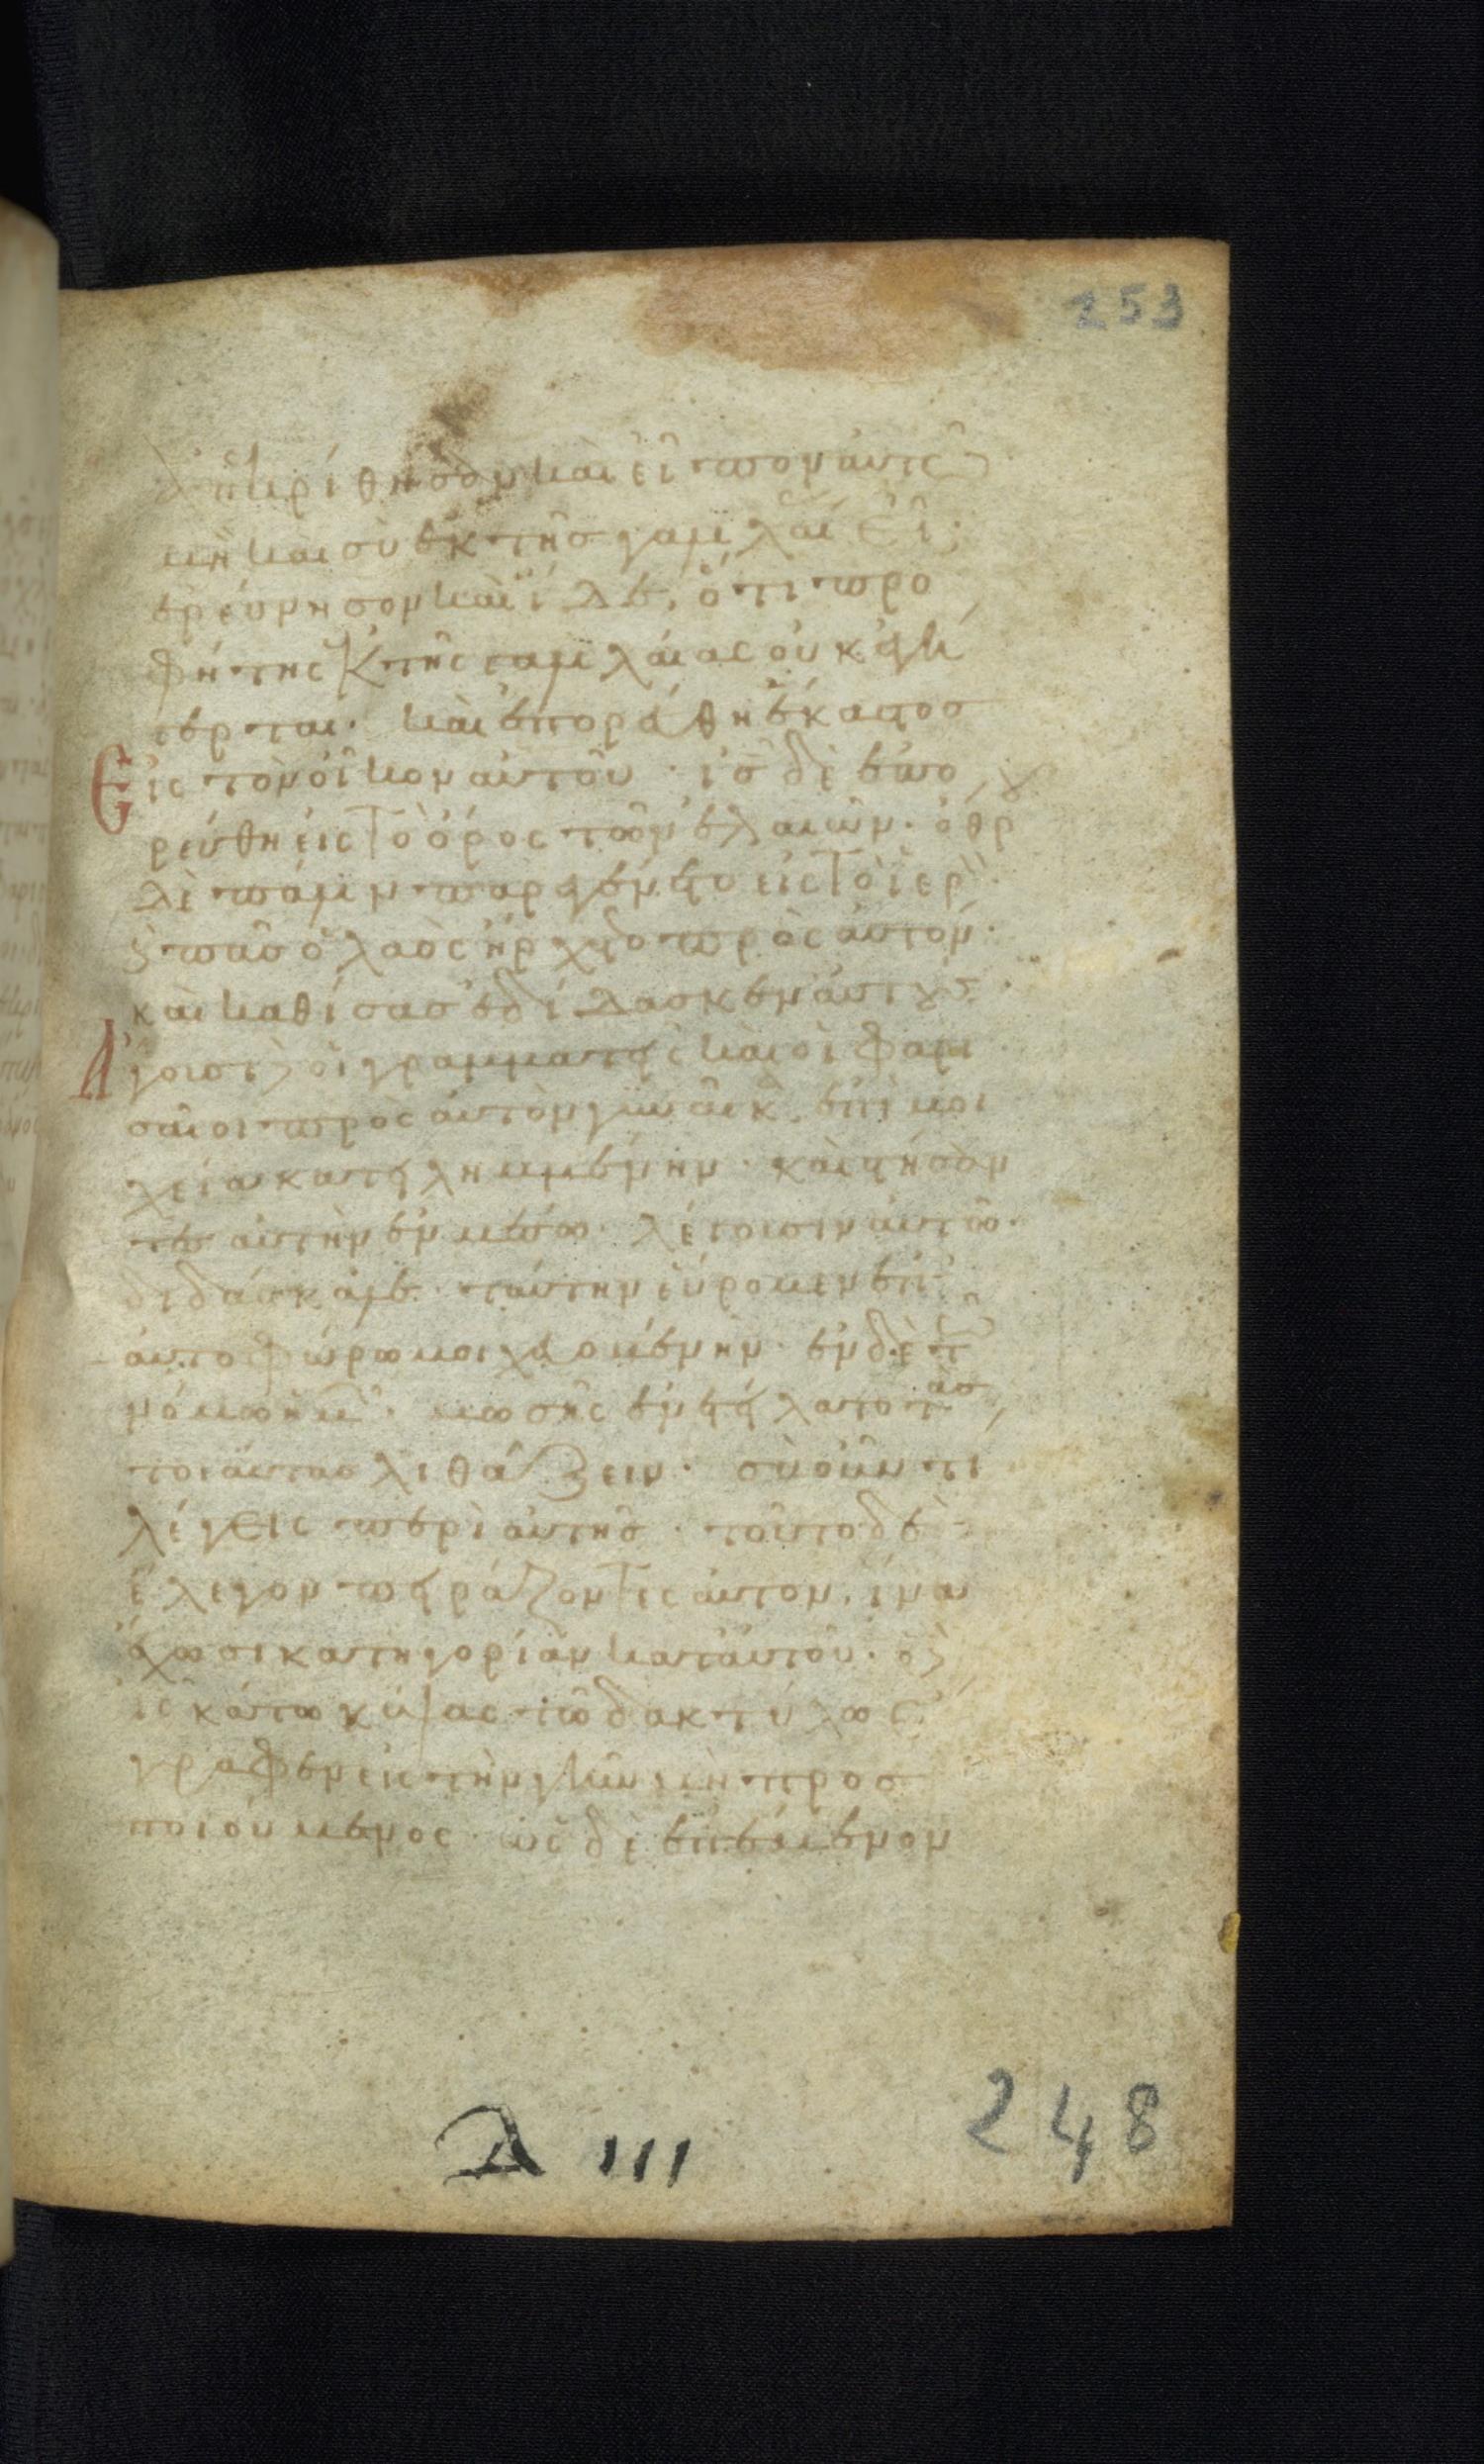 253
ἀπεκρίθησαν καὶ εἶπον αὐτῶ
μὴ καὶ σὺ ἐκ τῆς γαλιλαί εἶ·
ἐρεύνησον καὶ ἴδε, ὅτι προ
φήτης ἐκ τῆς γαλιλαίας οὐκ ἐγή
γερται· καὶ ἐπορεύθη ἕκαστος
Εἰς τὸν οἶκον αὐτοῦ· ις δὲ ἐπο
ρεύθη εἰς τὸ ὄρος τῶν ἐλαιῶν· ὄρθρ
δὲ πάλιν παρεγένετο εἰς τὸ ἱερ
καὶ πᾶς ὁ λαὸς ἤρχετο πρὸς αὐτόν·
καὶ καθίσας ἐδίδασκεν αὐτούς·
Ἄγουσι δὲ οἱ γραμματεῖς καὶ οἱ φαρι
σαῖοι πρὸς αὐτὸν γυναῖκα ἐπὶ μοι
χεία κατειλημμένην· καὶ στήσαν
τες αὐτὴν ἐν μέσω· λέγουσιν αὐτῶ·
διδάσκαλε· ταύτην εὕρομεν ἐπ
αυτοφώρω μοιχευομένην· ἐν δὲ τῶ
νόμω ἡμῶν μωσῆς ἐνετείλατο τὰς
τοιαύτας λιθάζειν· σὺ οὖν τι
λέγεις περὶ αὐτῆς· τοῦτο δὲ
ἔλεγον πειράζοντες αὐτον, ἵνα
ἔχωσι κατηγορίαν κατ αὐτοῦ· ὁ δὲ
ις κάτω κύψας τῶ δακτύλω ἔ
γραφεν εἰς τὴν γῆν μὴ προσ
ποιούμενος· ὡς δὲ ἐπέμενον
A III
248